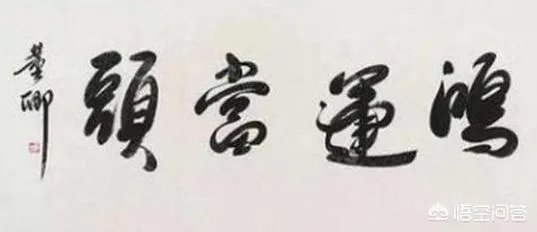 鴻運當頭
董卿
悟空问答